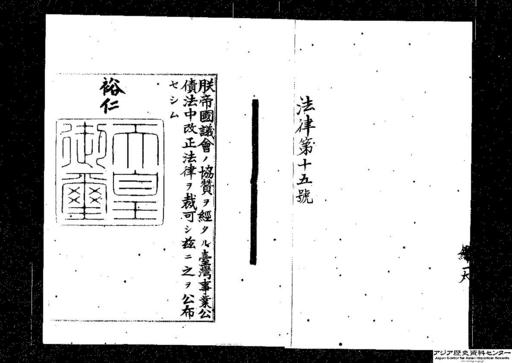 法律第十五號
朕帝國議會ノ協賛ヲ經タル臺灣事業公
債法中改正法律ヲ裁可シ茲ニ之ヲ公布
セシム
裕仁
天皇
御璽
アジア歴史資料センター
Japan Center for Asian Historical Records